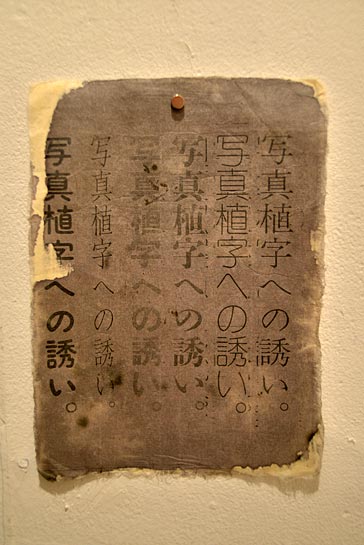 写真植字への誘い。
写真植字への誘い。
写真植字への誘い。
写真植字への誘い。
写真植字への誘い。
写真植字への誘い。